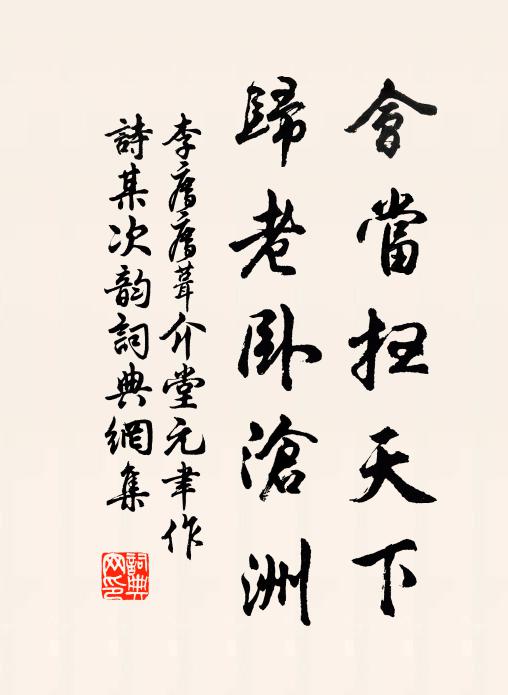 會當抂天下
歸老臥滄洲
李膺膺葺介堂元聿作
詩某次韵詞典網集
詞典网印